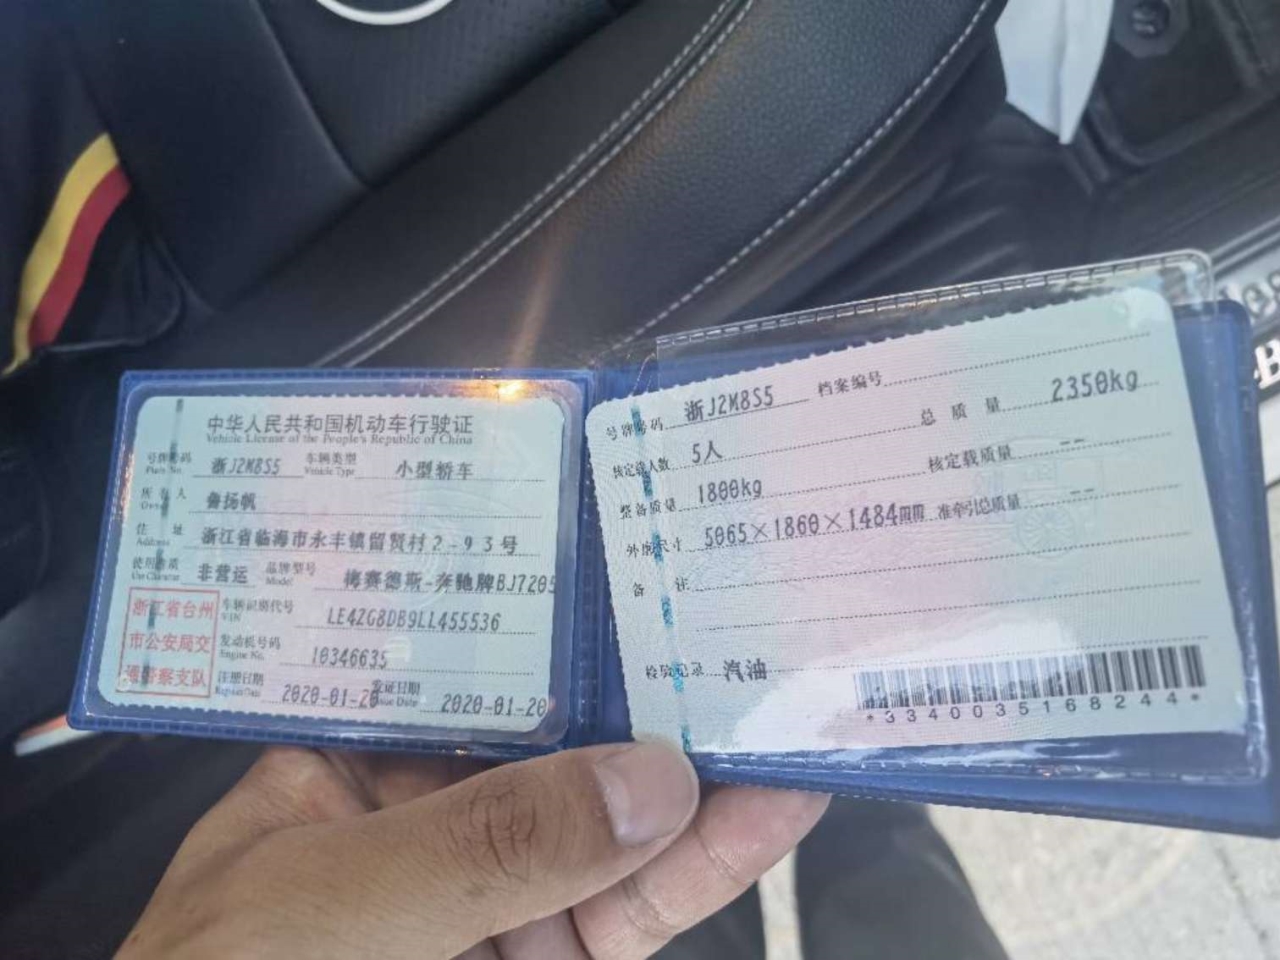 中华人民共和国机动车行驶证
Vehicle License of the People's Republic of China
号牌号码 浙J2M8S5 车辆类型 小型轿车
Plate No. Vehicle Type
所有人 鲁扬帆
Owner
住 址 浙江省临海市永丰镇留贤村2-93号
Address
使用性质 非营运 品牌型号 梅赛德斯-奔驰牌BJ7205
Use Character Model
浙江省台州
市公安局交
通警察支队
车辆识别代号 LE4ZG8DB9LL455536
VIN
发动机号码 10346635
Engine No.
注册日期 2020-01-20 发证日期 2020-01-20
Register Date Issue Date
号牌号码 浙J2M8S5 档案编号
核定载人数 5人 总 质 量 2350kg
整备质量 1800kg 核定载质量 --
外廓尺寸 5065×1860×1484mm 准牵引总质量 --
备 注
检验记录 汽油
*3340035168244*